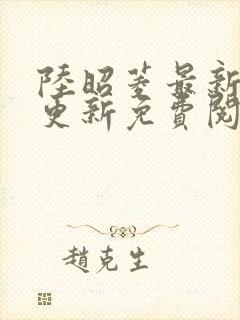 陸昭菱最新
更新免費閱
趙克生